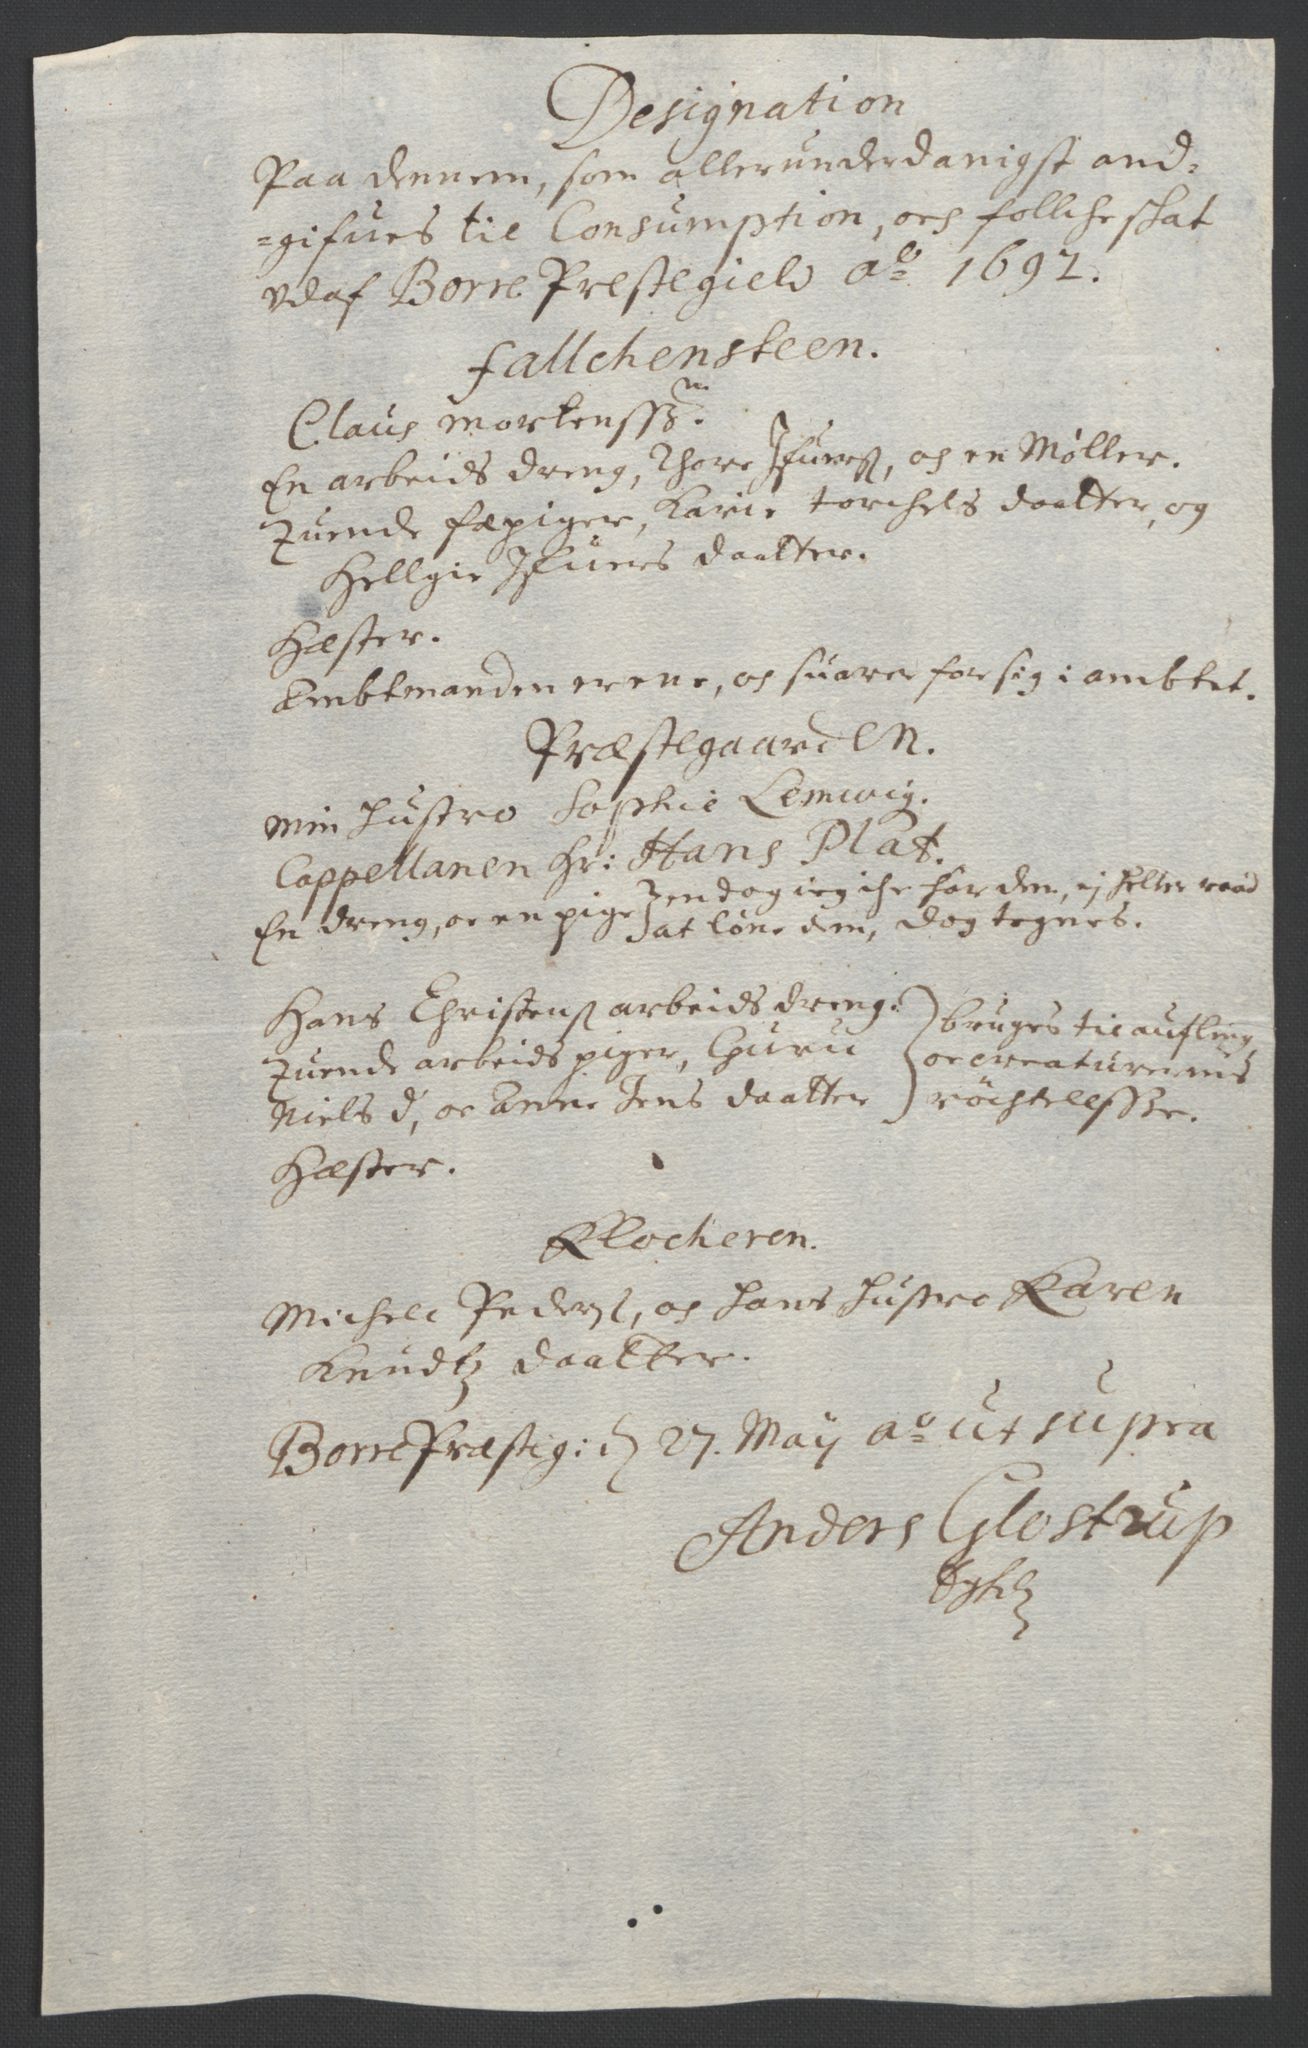 Designation
Paa dennem, som allerunderdanigst and-
=gifues til Consumption, och follche skat
vdaf Borre Prestegield ao 1692.
Fallchensteen.
Claus Mortenssøn.
En arbeids dreng, Thore Ifuerß, og en Møller.
Tuende fæpiger, Karie Torchels daatter, og
Hellgie Ifuers daatter.
Hæster.
Ambtmanden er ene, og suarer for sig i ambtet.
Præstegaarden.
Min hustro Sophie Lemwig.
Cappellanen Hr: Hans Plat.
En dreng, oc en pige } endog ieg iche har dem, ej heller raad
at løne dem, dog tegnes.
Hans Christenß arbeids dreng.
Tuende arbeids piger, Guru
Niels d, oc Anne Jens daatter
} bruges til aufling
oc creaturernis
røchtelsse.
Hæster.
Klocheren.
Michell Pederß, og hans hustro Karen
Knudtz daatter.
Borre Præstig: d 27. Maij ao ut supra
Anders Glostrup